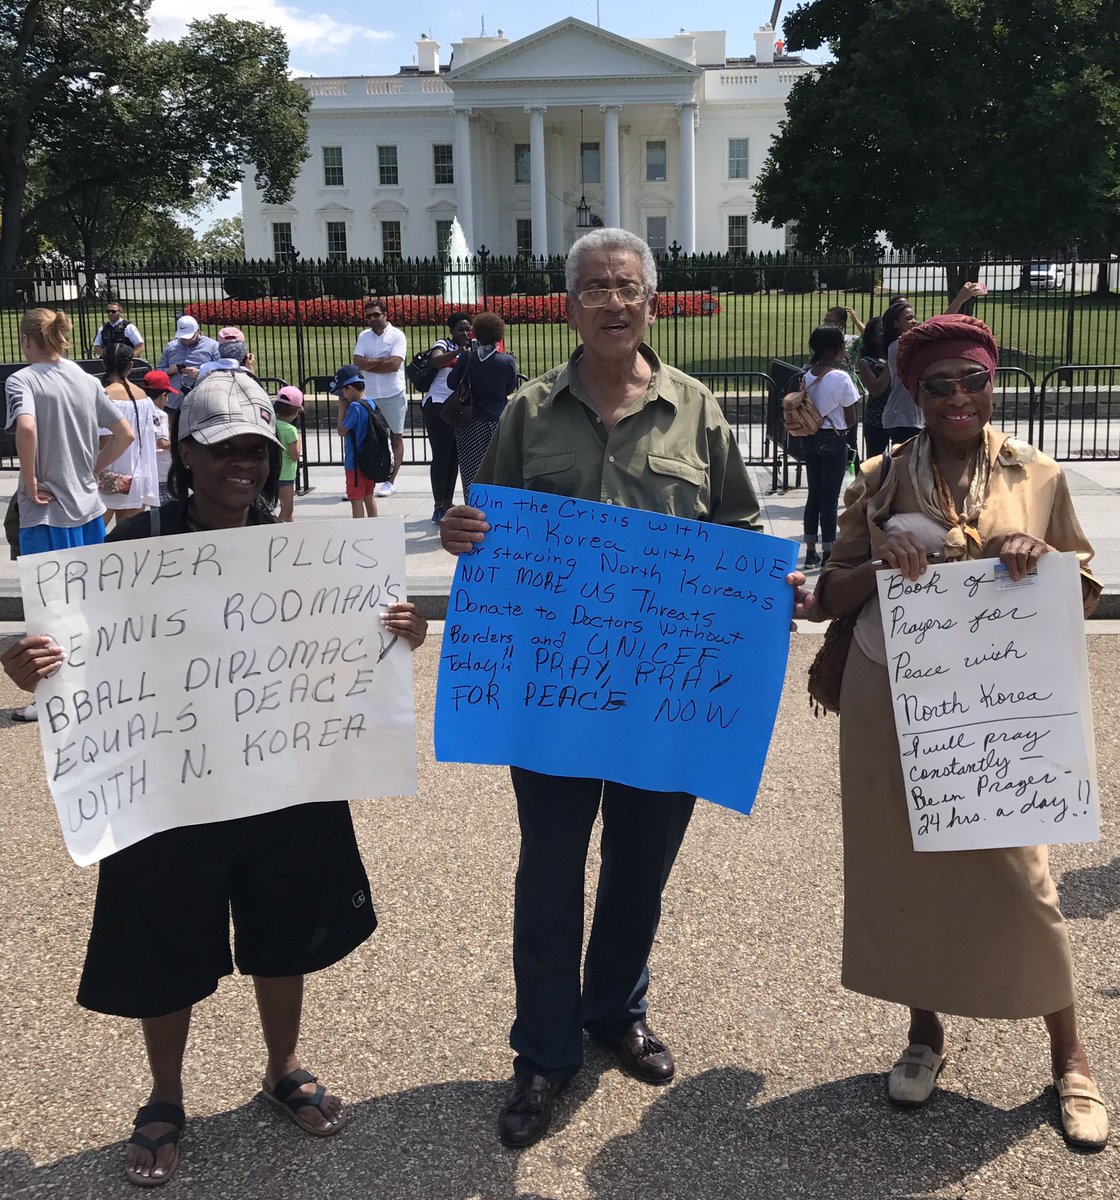 PRAYER PLUS
DENNIS RODMAN'S
BBALL DIPLOMACY
EQUALS PEACE
WITH N. KOREA
Win the Crisis with
North Korea with LOVE
for starving North Koreans
NOT MORE US Threats
Donate to Doctors Without
Borders and UNICEF
Today!! PRAY, PRAY
FOR PEACE NOW
Book of
Prayers for
Peace with
North Korea
I will pray
constantly —
Be in Prayer -
24 hrs. a day!!